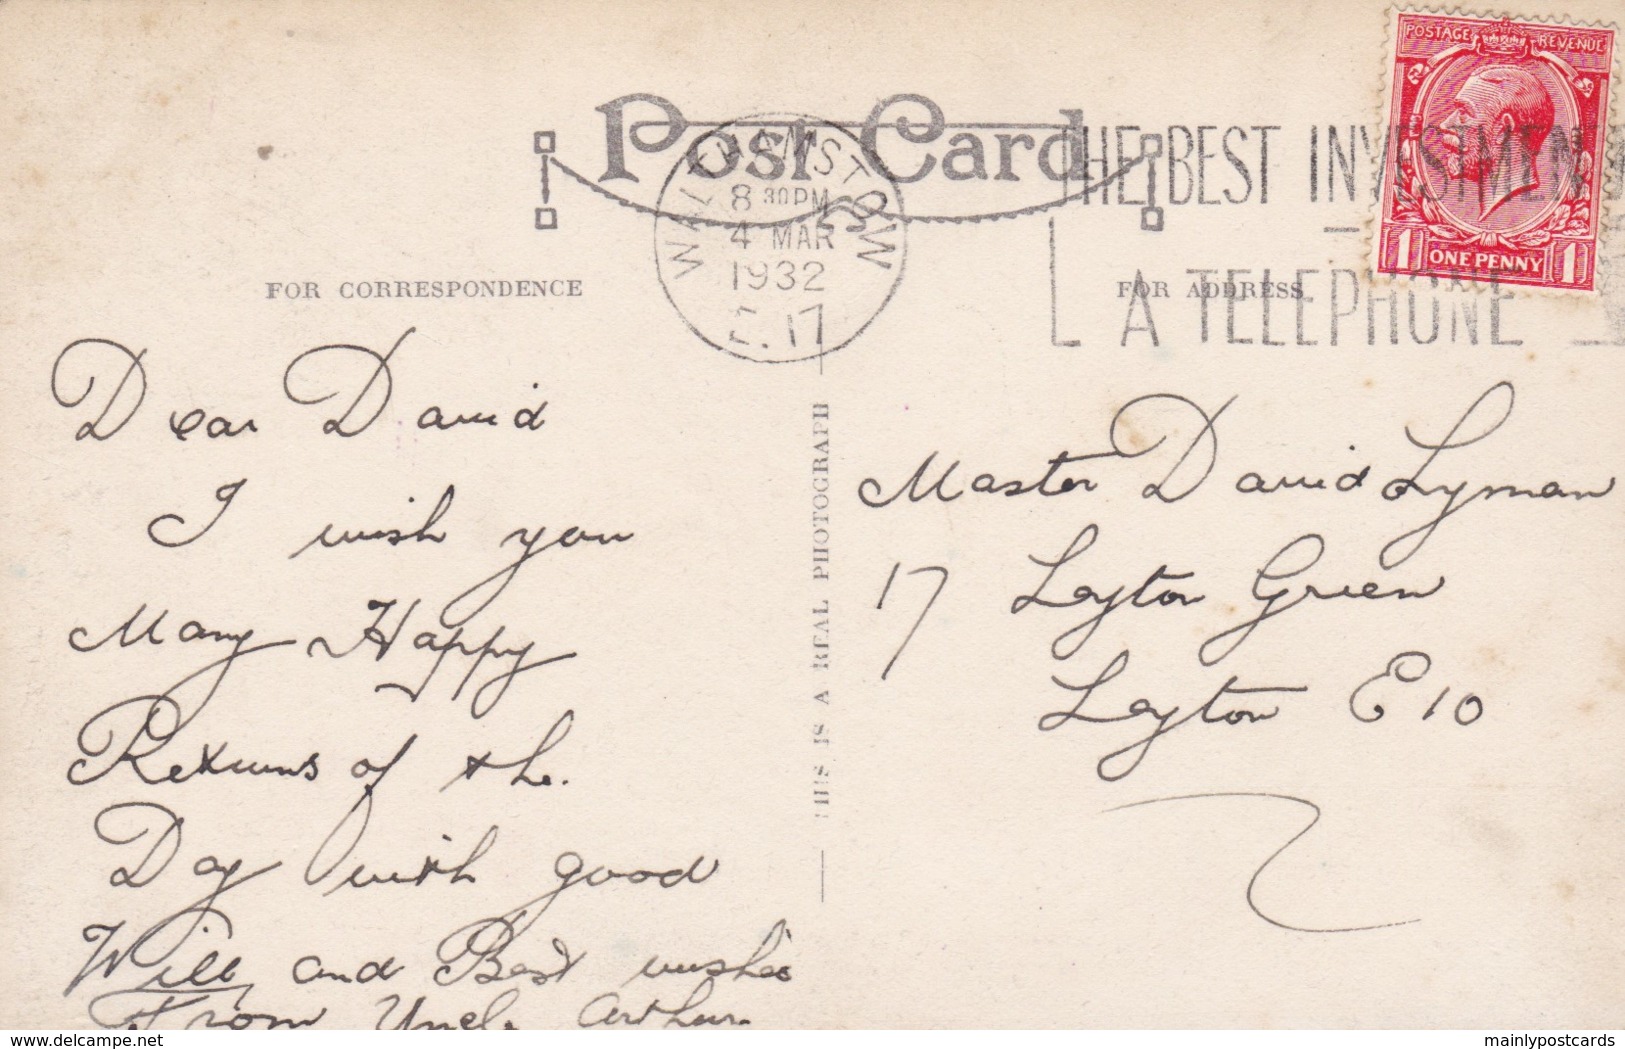 POSTAGE REVENUE
Post Card
WALTHAMSTOW
8 30PM
4 MAR
1932
E.17
THE BEST INVESTMENT
A TELEPHONE
ONE PENNY
1 1
FOR CORRESPONDENCE
FOR ADDRESS
THIS IS A REAL PHOTOGRAPH
Dear David
I wish you
Many Happy
Returns of the
Day with good
Will and Best wishes
From Uncle Arthur
Master David Lyman
17 Leyton Green
Leyton E10
delcampe.net
mainlypostcards